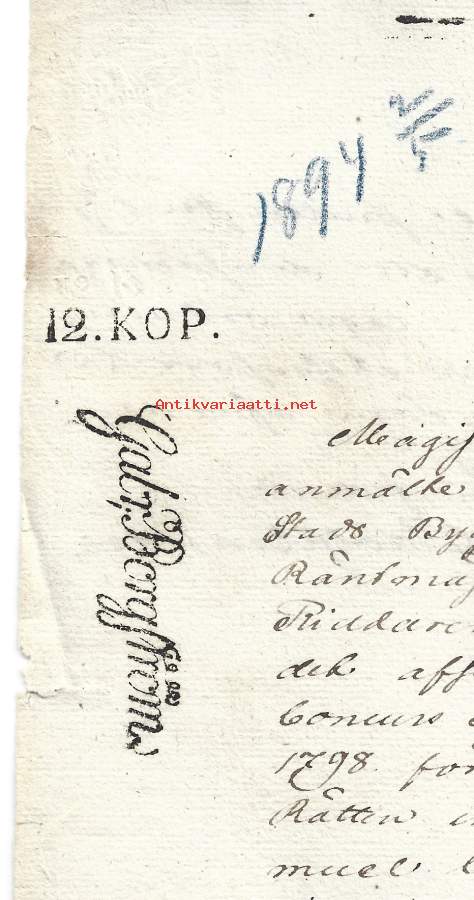 1894 2/5
12. KOP.
Antikvariaatti.net
Gabr. Bergström
anmälte
Stads By
Riddare
det aff
Concurs
1798 för
Rätten
muel